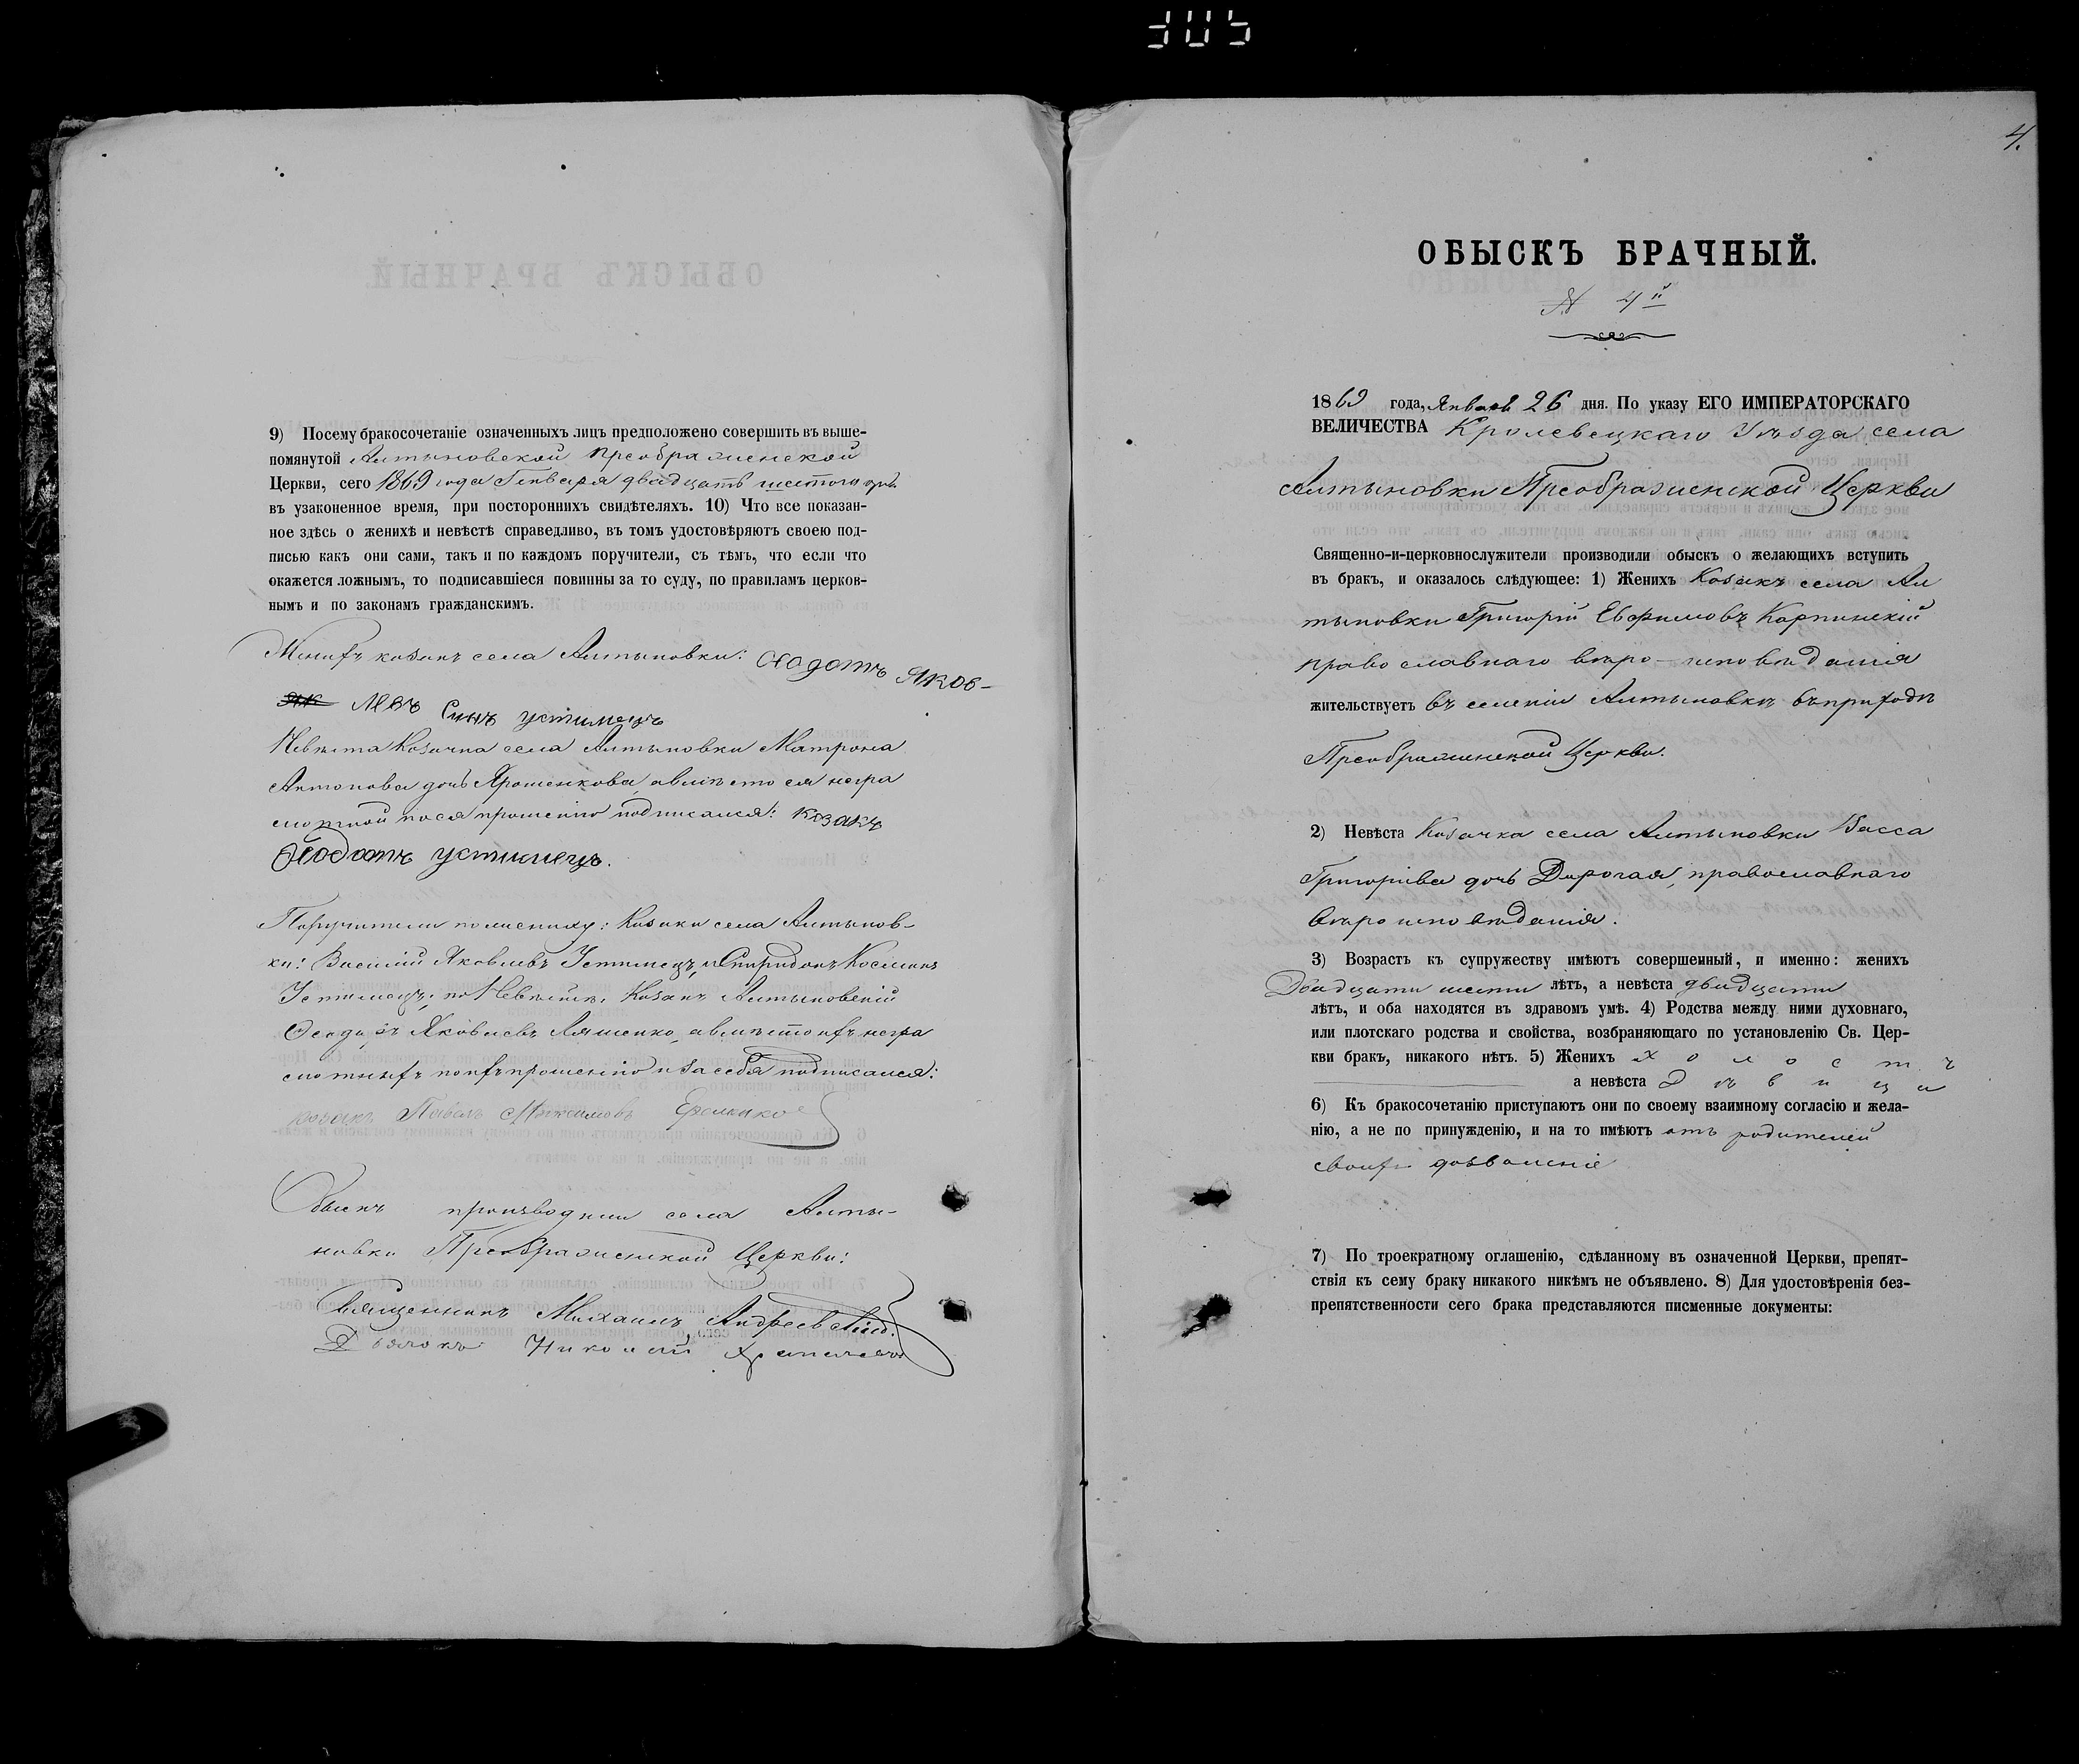 305
9) Посему бракосочетаніе означенныхъ лицъ предположено совершить въ выше-
помянутой Алтыновской Преображенской
Церкви, сего 1869 года Генваря двадцать шестого
въ узаконенное время, при постороннихъ свидѣтеляхъ. 10) Что все показан-
ное здѣсь о женихѣ и невѣстѣ справедливо, въ томъ удостовѣряютъ своею под-
писью какъ они сами, такъ и по каждомъ поручители, съ тѣмъ, что если что
окажется ложнымъ, то подписавшіеся повинны за то суду, по правиламъ церков-
нымъ и по законамъ гражданскимъ.
Женихъ козакъ села Алтыновки: Яков-
левъ Сынъ устимецъ
Невѣста Козачка села Алтыновки Матрона
Антонова дочь Ярошенкова, а вмѣсто ея негра
мотной по ея прошенію подписался: козакъ
устимецъ.
Поручители по женихѣ: Козаки села Алтынов-
ки: Василій Яковлевъ Устимецъ, и Спиридонъ Косминъ
Устимецъ; по Невѣстѣ: Козакъ Алтыновскій
Яковлевъ Ляшенко, а вмѣсто ихъ негра
мотныхъ по ихъ прошенію и за себя подписался:
козакъ Павелъ Максимовъ
Обыскъ производили села Алты-
новки Преображенской Церкви:
Священникъ Михаилъ
Дьячокъ Николай
4.
ОБЫСКЪ БРАЧНЫЙ.
N 4й
1869 года, Января 26 дня. По указу ЕГО ИМПЕРАТОРСКАГО
ВЕЛИЧЕСТВА Кролевецкаго Уѣзда села
Алтыновки Преображенской Церкви
Священно-и-церковнослужители производили обыскъ о желающихъ вступить
въ бракъ, и оказалось слѣдующее: 1) Женихъ Козакъ села Ал
тыновки Григорій Евфимовъ Карпинскій
православнаго вѣро-исповѣданія
жительствуетъ въ селеніи Алтыновкѣ въ приходѣ
Преображенской Церкви.
2) Невѣста Козачка села Алтыновки Васса
Григоріева дочь Дорогая, православнаго
вѣроисповѣданія.
3) Возрастъ къ супружеству имѣютъ совершенный, и именно: женихъ
Двадцати шести лѣтъ, а невѣста двадцати
лѣтъ, и оба находятся въ здравомъ умѣ. 4) Родства между ними духовнаго,
или плотскаго родства и свойства, возбраняющаго по установленію Св. Цер-
кви бракъ, никакого нѣтъ. 5) Женихъ холостъ
а невѣста Дѣвица
6) Къ бракосочетанію приступаютъ они по своему взаимному согласію и жела-
нію, а не по принужденію, и на то имѣютъ отъ родителей
своихъ дозволеніе
7) По троекратному оглашенію, сдѣланному въ означенной Церкви, препят-
ствія къ сему браку никакого никѣмъ не объявлено. 8) Для удостовѣренія без-
препятственности сего брака представляются писменные документы: